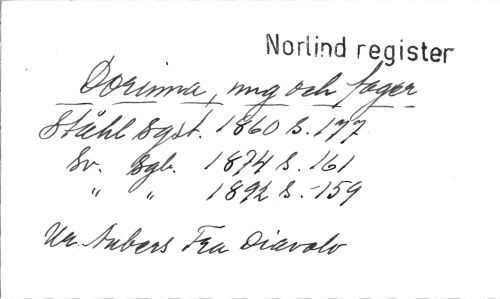 Norlind register
Dorinna, ung och fager
Ståhl Sgst. 1860 S. 177
Sv. Sgb. 1874 S. 161
" " 1892 S. 159
Ur Aubers Fra Diavolo